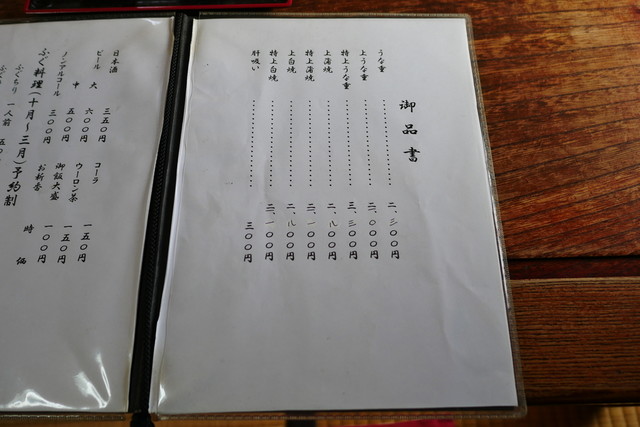 御品書
うな重 二、三〇〇円
上うな重
特上うな重 三、三〇〇円
上蒲焼 二、八〇〇円
特上蒲焼 三、一〇〇円
上白焼 二、八〇〇円
特上白焼 三、一〇〇円
肝吸い 三〇〇円
日本酒 三五〇円
ビール 大 六〇〇円
中 五〇〇円
ノンアルコール 三〇〇円
コーラ 一五〇円
ウーロン茶 一五〇円
御飯大盛 一〇〇円
お新香 時価
ふぐ料理(十月〜三月)予約制
ふぐちり 一人前